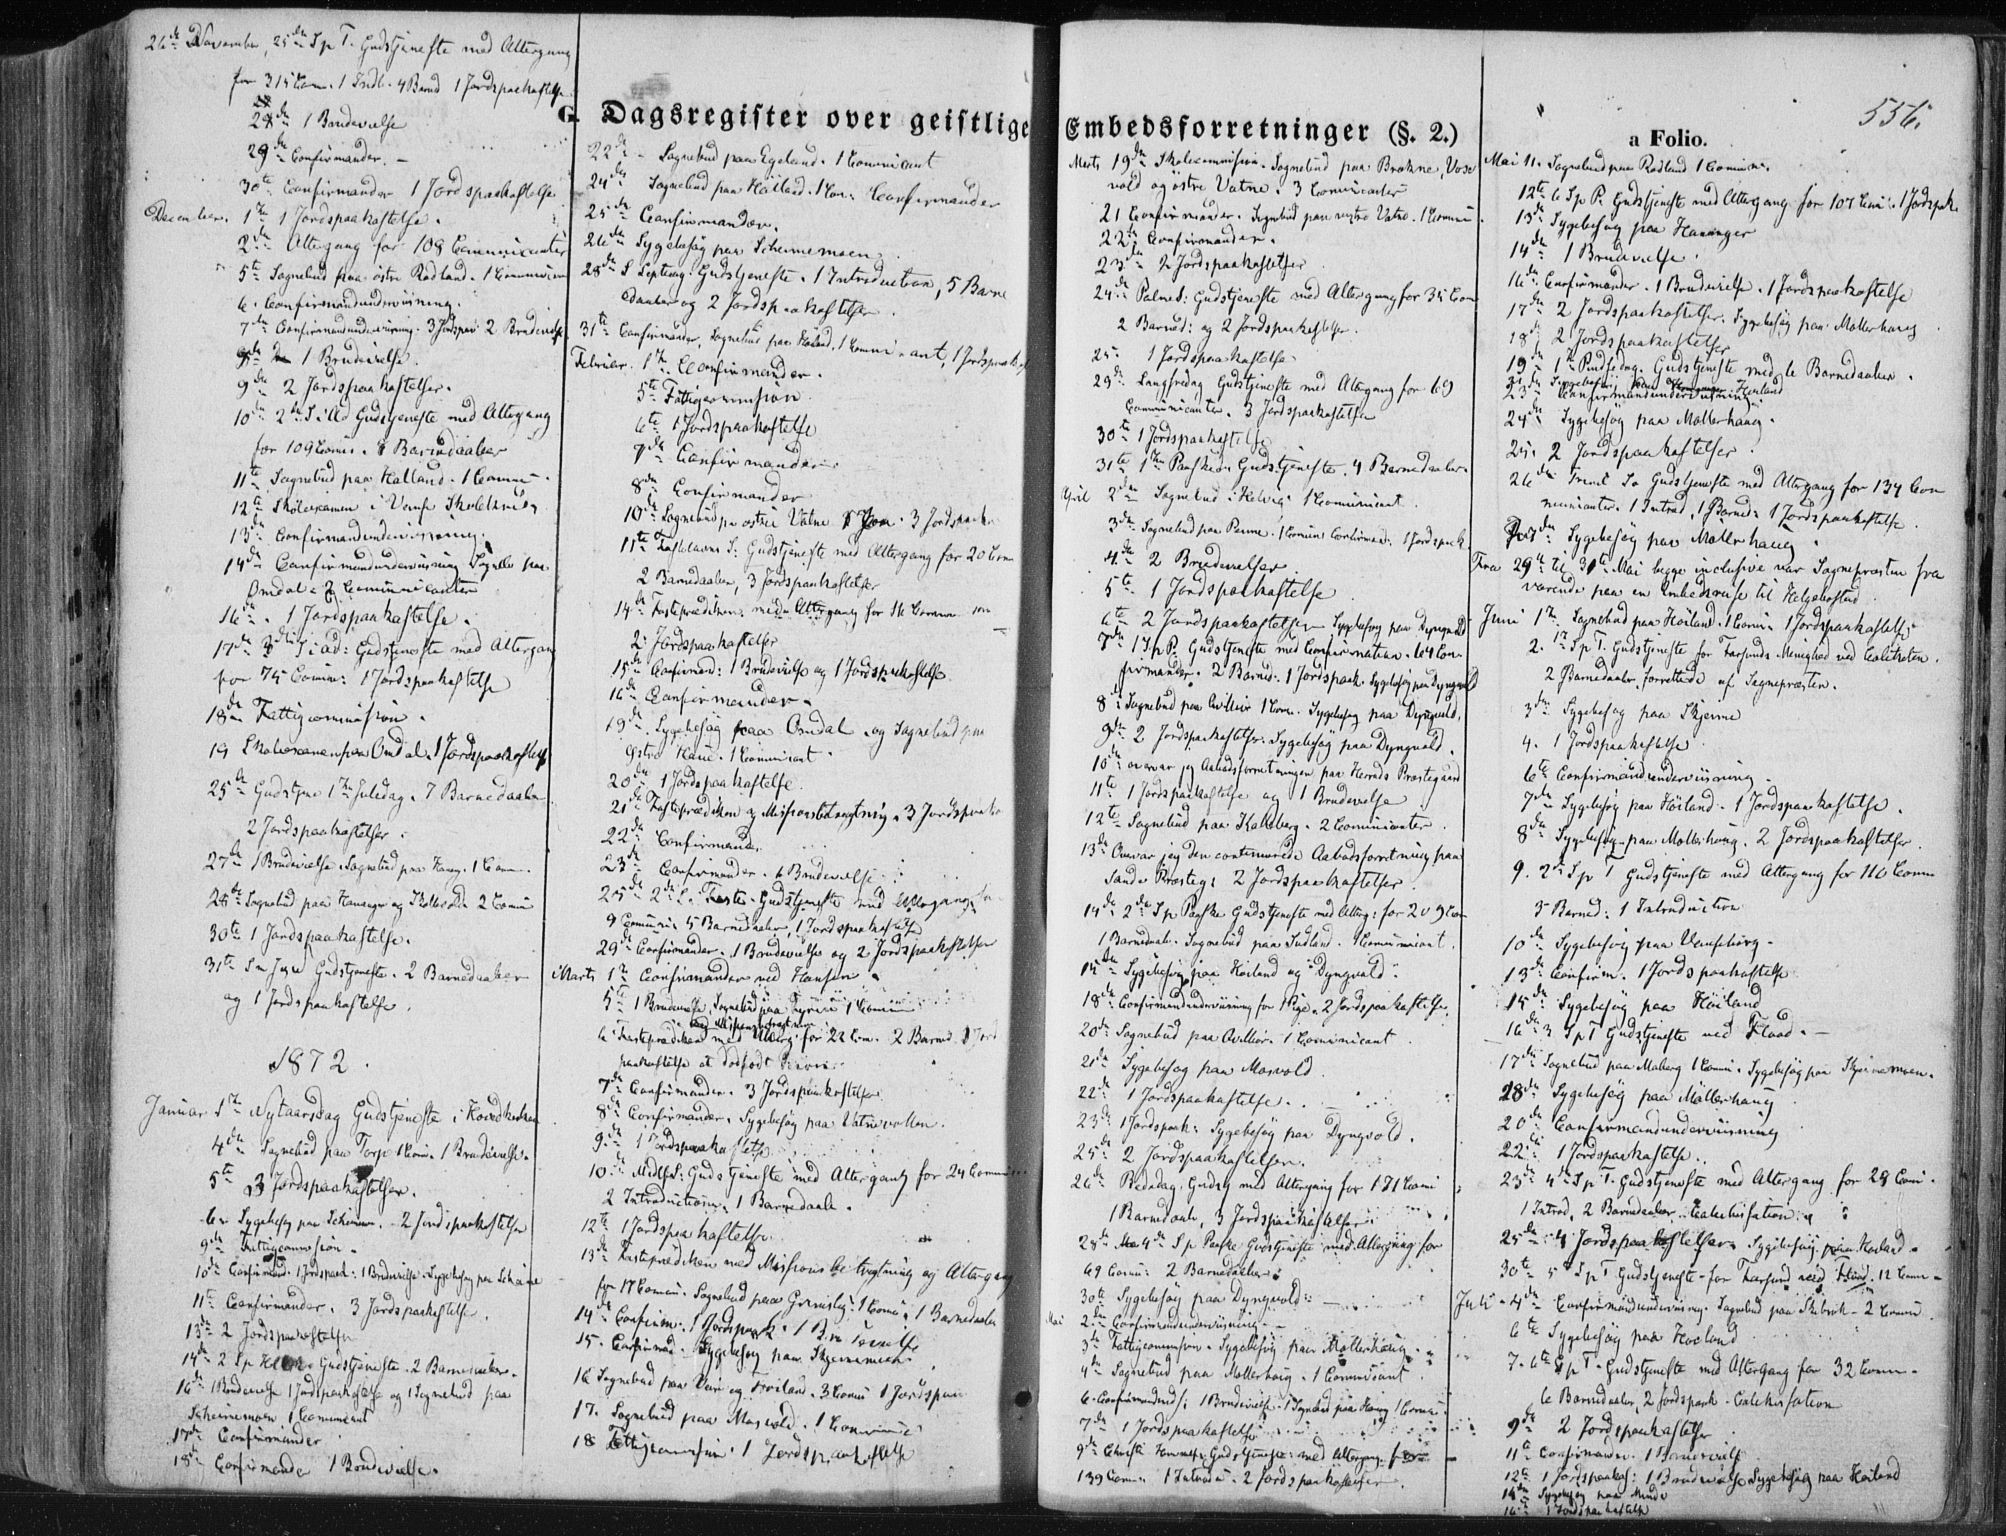 26de November, 25de S p T. Gudstjeneste med Altergang
for 315 Com. 1 Indl. 4 Barned 1 Jordspaakastelse
28de 1 Brudevielse
29de Confirmander. –
30te Confirmander 1 Jordspaakastelse
December. 1te 1 Jordspaakastelse.
2den Altergang for 108 Communicanter
5te Sognebud paa østre Rødland. 1 Communicant
6. Confirmandunderviisning.
7de Confirmandunderviisning. 3 Jordspaa 2 Brudevielse
1 Brudevielse.
9de 2 Jordspaakastelser.
10de 2den S. i Ad Gudstjeneste med Altergang
for 109 Comm. 8 Barnedaaber
11te Sognebud paa Høiland. 1 Commu
12te Skoleexamen i Vanse Skolehuus
13de Confirmandunderviisning.
14de Confirmandunderviisning Sognebud paa
Omdal 2 Communicanter
16de . 1 Jordspaakastelse.
17de 3die S i ad: Gudstjeneste med Altergang
for 75 Comm: 1 Jordspaakastelse
18de Fattigcommission.
19 Skoleexamen paa Omdal. 1 Jordspaakastelse
25de Gudstjene 1te Juledag. 7 Barnedaaber
2 Jordspaakastelser.
27de 1 Brudevielse. Sognebud paa Haug. 1 Com
28de Sognebud paa Hananger og Skollevold 2 Commu
30te 1 Jordspaakastelse.
31te S n Juul Gudstjeneste. 2 Barnedaaber
og 1 Jordspaakastelse.
1872.
Januar 1te Nytaarsdag Gudstjeneste i Hovedkirken
4de Sognebud paa Torp 1 Com. 1 Brudevielse.
5te 3 Jordspaakastelser.
6te Sygebesøg paa Skeime. 2 Jordspaakastelse
9de Fattigcommission.
10de Confirmand. 1 Jordspaak: 1 Brudevielse. Sygebesøg paa Skeime
11te Confirmander. 3 Jordspaakastelse.
13de 2 Jordspaakastelse
14de 2 S p H3K Gudstjeneste. 2 Barnedaaber.
16de 1 Brudevielse 1 Jordspaakastelse og 1 Sognebud paa
Skeimemoen 1 Communicant
17de Confirmander
18de Confirmander 1 Brudevielse.
G. Dagsregister over geistlige
22de – Sognebud paa Egeland. 1 Communicant
24de Sognebud paa Høiland. 1 Com: Confirmander
25de Confirmander.
26de Sygebesøg paa Scheimemoen.
28de S Septuag. Gudstjeneste. 1 Introduction, 5 Barne
daaber og 2 Jordspaakastelser.
31te Confirmander, Sognebud paa Høiland, 1 Communicant, 1 Jordspaak
Februar. 1te Confirmander.
5te Fattigcommission
6te 1 Jordspaakastelse
7de Confirmander
8de Confirmander
10de Sognebud paa østre Vatne 1 Com. 3 Jordspaaka
11te Fastelavns S: Gudstjeneste med Altergang for 20 Com
2 Barnedaaber, 3 Jordspaakastelser
14de Fasteprædiken med Altergang for 16 Commun
2 Jordspaakastelser
15de Confirmand: 1 Brudevielse og 1 Jordspaakastelse
16de Confirmander.
19de Sygebesøg paa Omdal og Sognebud paa
Østre Hauge. 1 Communicant.
20de 1 Jordspaakastelse
21de Fasteprædiken og Missionsbetragtning. 3 Jordspaaka
22de Confirmand.
23de Confirmander. 6 Brudevielse
25de 2den S. Faste. Gudstjeneste med Altergang for
9 Commun: 5 Barnedaaber, 1 Jordspaakastelse
29de Confirmander. 1 Brudevielse og 2 Jordspaakastelser
Marts 1te Confirmander ved Hansen.
5te 1 Brudevielse, Sognebud paa 1 Commun
og Missionsbetragtning
6te Fasteprædiken med Alterg. for 22 Com. 2 Barned. 1 Jord
paakastelse et dødfødt Barn.
7de Confirmander. 3 Jordspaakastelser
8de Confirmander. Sygebesøg paa Vatnevolden.
9de 1 Jordspaakastelse
10de MidfS: Gudstjeneste med Altergang for 24 Commun
2 Introductioner. 1 Barnedaab.
12te 1 Jordspaakastelse
13de Fasteprædiken med Missionsbetragtning og Altergang
for 17 Commun. Sognebud paa Grimsby. 1 Commu, 1 Barnedaaber
14de Confirm: 1 Jordspaak. 1 Brudevielse
15. Confirmand. Sygebesøg paa Skjeimemoen
16 Sognebud paa Veire og Høiland. 3 Comm 1 Jordspaa
17. Sognebud paa Mosvold. 1 Communic
18 Fattigcommission. 1 Jordspaakastelse
Embedsforretninger (§. 2.)
Marts 19de Skolecommission. Sognebud paa Brokne, Vose
vold og østre Vatne. 3 Communicanter
21 Confirmander. Sognebud paa vestre Vatne. 1 Commun
22de Confirmander.
23de 2 Jordspaakastelser
24de Palmes: Gudstjeneste med Altergang for 35 Com
2 Barned: og 2 Jordspaakastelser.
25. 1 Jordspaakastelse
29de Langfredag Gudstjeneste med Altergang for 69
Communicanter. 3 Jordspaakastelse
30te 1 Jordspaakastelse
31te 1te Paaskedag Gudstjeneste. 4 Barnedaaber.
April 2den Sognebud i Helvig 1 Communicant.
3de Sognebud paa Penne. 1 Commun Confirmand: 1 Jordspaak.
4de 2 Brudevielser.
5te 1 Jordspaakastelse
6te 2 Jordspaakastelser. Sygebesøg paa Dyngvold
7de 1 S p P. Gudstjeneste med Confirmation. 64 Con
firmander. 2 Barned: 1 Jordspaak. Sygebesøg paa Dyngvold
8de Sognebud paa Qvilliør 1 Com. Sygebesøg paa Dyngvold.
9de 2 Jordspaakastelse. Sygebesøg paa Dyngvold.
10de overvar jeg Aabodsforretningen paa Herreds Præstegaard
11te 1 Jordspaakastelse og 1 Brudevielse
12te Sognebud paa Kalleberg. 2 Communicanter
13de Overvar jeg den continuerede Aabodsforretning paa
Sande Præsteg: 2 Jordspaakastelser.
14de 2de S p Paaske Gudstjeneste med Alterg: for 209 Com
1 Barnedaab. Sognebud paa Sudland. 1 Communicant.
15de Sygebesøg paa Høiland og Dyngvold.
18de Confirmandunderviisning for 1 Pige. 2 Jordspaakastelse.
20de Sognebud paa Qvilliør. 1 Communicant.
21de Sygebesøg paa Mosvold.
22de 1 Jordspaakastelse.
23de 1 Jordspaak: Sygebesøg paa Dyngvold.
25de 2 Jordspaakastelser.
26de Bededag. Gudstj med Altergang for 171 Commi
1 Barnedaab, 3 Jordspaakastelser.
28de 4de S p Paaske Gudstjeneste med Altergang for
69 Commun: 2 Barnedaaber.
30te Sygebesøg paa Dyngvold.
Mai 2den Confirmandunderviisning.
3de Fattigcommission. Sygebesøg paa Møllerhaug.
4de Sognebud paa Møllerhaug. 1 Communicant.
6. Confirmandund: 1 Brudevielse. 1 Sognebud paa Haug 1 Commun.
7de 1 Jordspaakastelse
9de Christi Himmelf: Gudstjeneste med Altergang for
139 Comm. 1 Introdu. 2 Jordspaakastelser.
a Folio.
556.
Mai 11. Sognebud paa Rødland 1 Commun.
12te 6 S p P. Gudstjeneste med Altergang for 107 Com. 1 Jordspak.
13de Sygebesøg paa Hananger
14de 1 Brudevielse.
16de Confirmander. 1 Brudevielse. 1 Jordspaakastelse
17de 2 Jordspaakastelser. Sygebesøg paa Møllerhaug
18de 2 Jordspaakastelser
19de 1te Pindsedag. Gudstjeneste med 6 Barnedaaber.
21de Sygebesøg paa Høiland
23de Confirmandunderviisning
24de Sygebesøg paa Møllerhaug.
25. 2 Jordspaakastelser.
26de Trinit S. Gudstjeneste med Altergang for 134 Com
municanter. 1 Introd, 1 Barned: 1 Jordspaakastelse.
Sygebesøg paa Møllerhaug.
Fra 29de til 31te Mai begge inclusive var Sognepræsten fra
værende paa en Embedsreise til Helgebostad.
Juni 1te Sognebud paa Høiland. 1 Commi. 1 Jordspaakastelse
2. 1te S p T. Gudstjeneste for Farsunds Menighed ved
2 Barnedaaber forrettede af Sognepræsten.
3de Sygebesøg paa Skjeime
4. 1 Jordspaakastelse
6te Confirmandunderviisning.
7de Sygebesøg paa Høiland. 1 Jordspaakastelse.
8de Sygebesøg paa Møllerhaug. 2 Jordspaakastelser.
9. 2de S p T Gudstjeneste med Altergang for 110 Comm
5 Barned: 1 Introduction
10de Sygebesøg paa Vanseborg.
13de Confirm. 1 Jordspaakastelse
15de Sygebesøg paa Høiland
16de 3 S p T Gudstjeneste ved Flaad. –
17de Sognebud paa Maberg 1 Commi. Sygebesøg paa Skjeimemoen.
18de Sygebesøg paa Møllerhaug
20de Confirmandunderviisning
22de 1 Jordspaakastelse.
23de 4de S p T. Gudstjeneste med Altergang for 28 Comi.
1 Introd, 2 Barnedaaber. Catechisation.
25de 4 Jordspaakastelser. Sygebesøg paa Høiland.
30te 5te S p T Gudstjeneste for Farsund ved 12 Comm
Juli 4de Confirmandunderviisning. Sognebud paa Skeibrok. 2 Commu
6te Sygebesøg paa Høiland
7. 6te S p T. Gudstjeneste med Altergang for 32 Comm.
6 Barnedaaber, 2 Jordspaak. Catechisation
9de 2 Jordspaakastelse
11te Confirmander. 1 Brudevielse
12te 1 Jordspaakas: 1 Brudevielse Sygebesøg paa Høiland
14de Sygebesøg paa Minde
16de 1 Jordspaakastelse